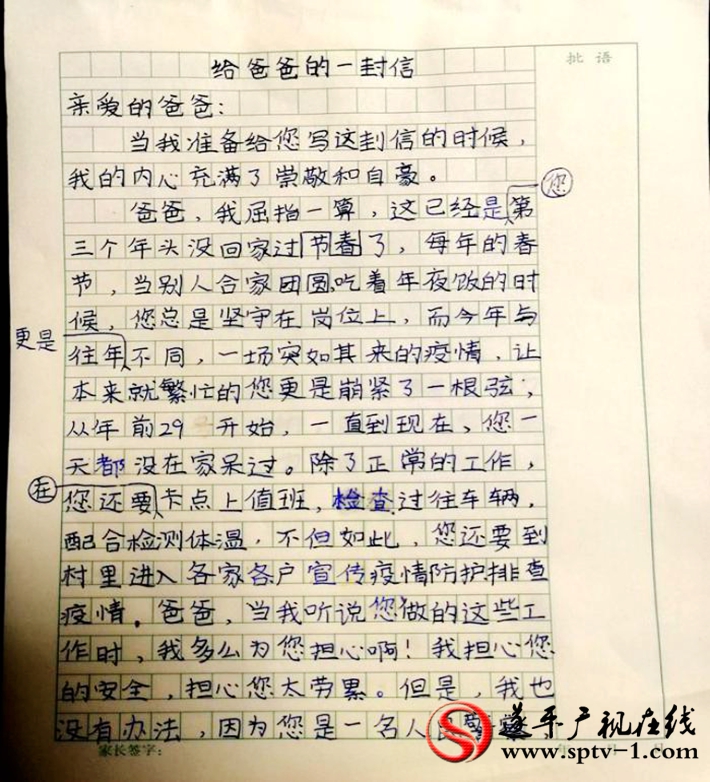 批语
给爸爸的一封信
亲爱的爸爸：
当我准备给您写这封信的时候，
我的内心充满了崇敬和自豪。
您
爸爸，我屈指一算，这已经是第
三个年头没回家过节春了，每年的春
节，当别人合家团圆吃着年夜饭的时
候，您总是坚守在岗位上，而今年与
更是
往年不同，一场突如其来的疫情，让
本来就繁忙的您更是崩紧了一根弦，
从年前29 开始，一直到现在，您一
天都没在家呆过。除了正常的工作，
在
您还要卡点上值班，检查过往车辆，
配合检测体温，不但如此，您还要到
村里进入各家各户宣传疫情防护排查
疫情。爸爸，当我听说您做的这些工
作时，我多么为您担心啊！我担心您
的安全，担心您太劳累。但是，我也
没有办法，因为您是一名人民警察
家长签字：
遂平广视在线
www.sptv-1.com